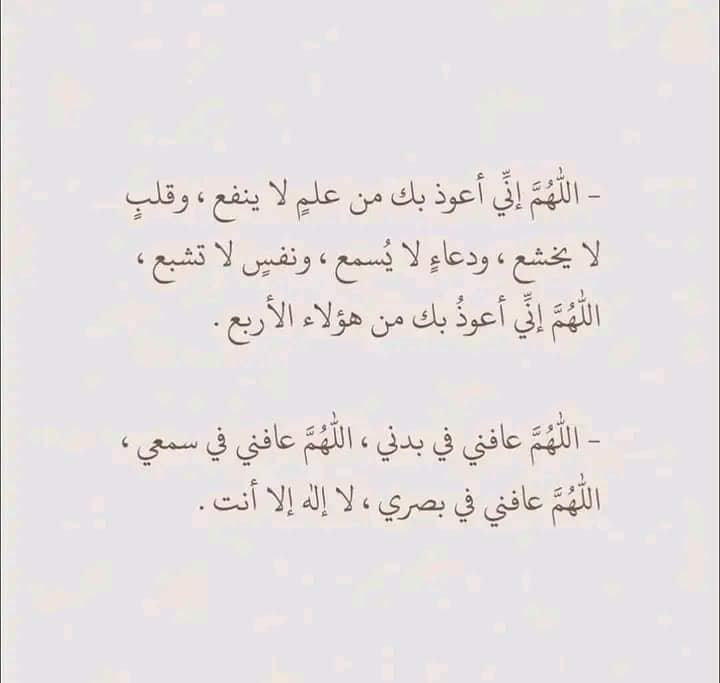 - اللَّهُمَّ إنِّي أعوذ بك من علمٍ لا ينفع ، وقلبٍ
لا يخشع ، ودعاءٍ لا يُسمع ، ونفسٍ لا تشبع ،
اللَّهُمَّ إنِّي أعوذُ بك من هؤلاء الأربع .
- اللَّهُمَّ عافني في بدني ، اللَّهُمَّ عافني في سمعي ،
اللَّهُمَّ عافني في بصري ، لا إلٰه إلا أنت .